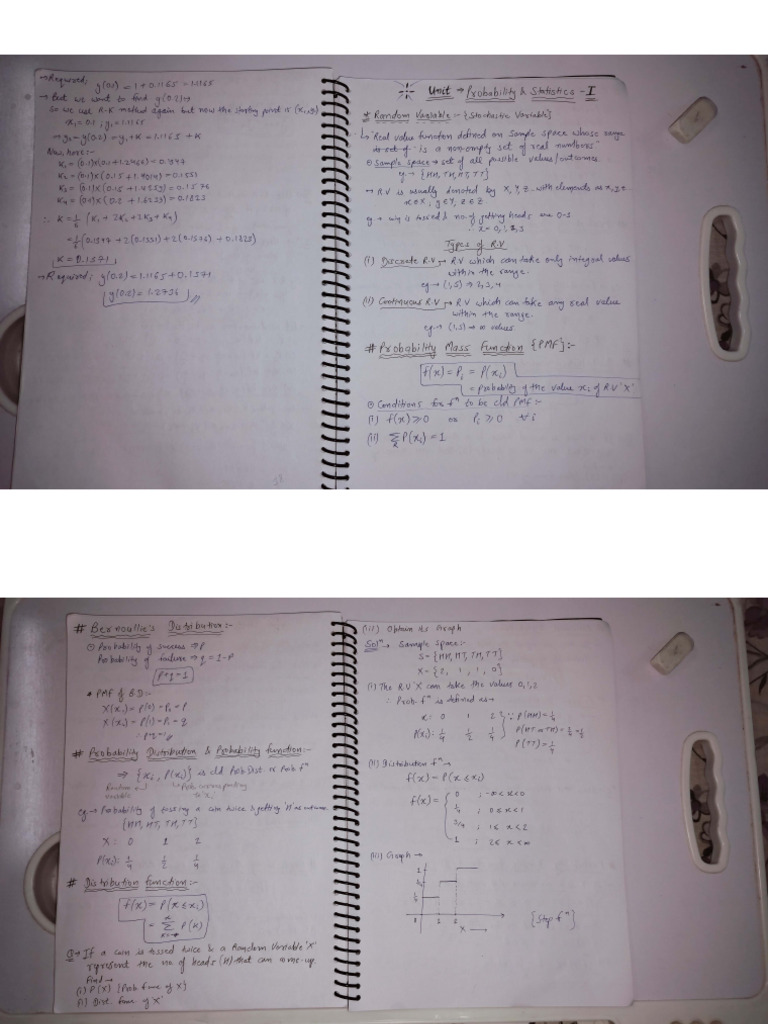 →Required: y(0.1) = 1 + 0.1165 = 1.1165
→ But we want to find y(0.2)→
so we use R-K method again but now the starting point is (x₁,y₁)
x₁=0.1, y₁=1.1165
⇒ y₂ = y(0.2) = y₁+K = 1.1165 + K
Now, here:-
K₁ = (0.1)
K₂ = (0.1)
K₃ = (0.1)
K₄ = (0.1)
∴ K = 1/6 (K₁ + 2K₂ + 2K₃ + K₄)
K = 0.1571
→Required: y(0.2) = 1.1165 + 0.1571
y(0.2) = 1.2736 //
Unit → Probability & Statistics - I
# Random Variable:- {Stochastic Variable}
↳ Real value function defined on sample space whose range
is a non-empty set of real numbers
⊙ Sample space → set of all possible values/outcomes
eg → {HH, TH, HT, TT}
→ R.V is usually denoted by X, Y, Z with elements as x, y, z
x∈X, y∈Y, z∈Z
no. of getting heads are 0-3
∴ x = 0, 1, 2, 3
Types of R.V
(i) Discrete R.V → R.V which can take only integral values
within the range.
eg → (1,5) ⇒ 2, 3, 4
(ii) Continuous R.V → R.V which can take any real value
within the range.
eg → (1,5) → ∞ values
# Probability Mass Function {PMF}:-
f(x) = Pᵢ = P(xᵢ)
= probability of the value xᵢ of R.V 'X'
⊙ Conditions for fⁿ to be cld PMF:-
(i) f(x) ≥ 0 or Pᵢ ≥ 0 ∀ i
(ii) Σ P(xᵢ) = 1
# Bernoullie's Distribution:-
⊙ Probability of success ⇒ p
Probability of failure ⇒ q = 1-p
p+q=1
• PMF of B.D:-
X(xᵢ) = P(0) = P₀ = p
X(xᵢ) = P(1) = P₁ = q
# Probability Distribution & Probability function:-
⇒ {xᵢ, P(xᵢ)} is cld Prob Dist or Prob fⁿ
Random variable
Prob. corresponding to 'xᵢ'
eg → Probability of tossing a coin twice & getting 'H' as outcome
{HH, HT, TH, TT}
X: 0 1 2
P(xᵢ): 1/4 1/2 1/4
# Distribution function:-
f(x) = P(X ≤ xᵢ)
Q → If a coin is tossed twice & a Random Variable 'X'
represent the no. of heads (H) that can come up.
Find →
(i) P(X) {Prob func of X}
(ii) Dist func of X
(iii) Obtain its Graph
Solⁿ → Sample space:-
S = {HH, HT, TH, TT}
X = {2, 1, 1, 0}
(i) The R.V 'X' can take the values 0,1,2
∴ Prob fⁿ is defined as →
x: 0 1 2 ∵ P(HH) = 1/4
P(xᵢ): 1/4 1/2 1/4 P(HT or TH) = 2/4 = 1/2
P(TT) = 1/4
(ii) Distribution fⁿ →
f(x) = P(X ≤ xᵢ)
f(x) = { 0 ; -∞ < x < 0
1/4 ; 0 ≤ x < 1
3/4 ; 1 ≤ x < 2
1 ; 2 ≤ x < ∞
(iii) Graph →
1
0 1 2
X →
{Step fⁿ}